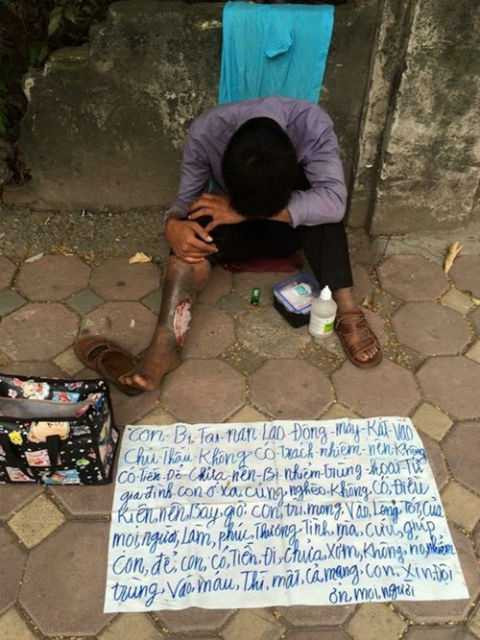 Con - Bị Tai nạn Lao Động - máy - Kắt - Vào
Chủ Thầu Không Có trách nhiệm - nên không
Có tiền Để Chữa - nên - Bị nhiễm trùng - Từ
gia đình con ở xa, cũng, nghèo không, Có, Điều
Kiện, nên Bây giờ, con, trì, mong, Vào, Lòng, Tốt, Của
mọi, người, Làm, phúc, Thương, Tình, mà, cứu, giúp
Con, để, con, Có, Tiền, Đi, Chữa, Xớm, không, nó, nhiễm
trùng, Vào, máu, Thì, mất, Cả mạng, Con, Xin đội
ơn mọi người